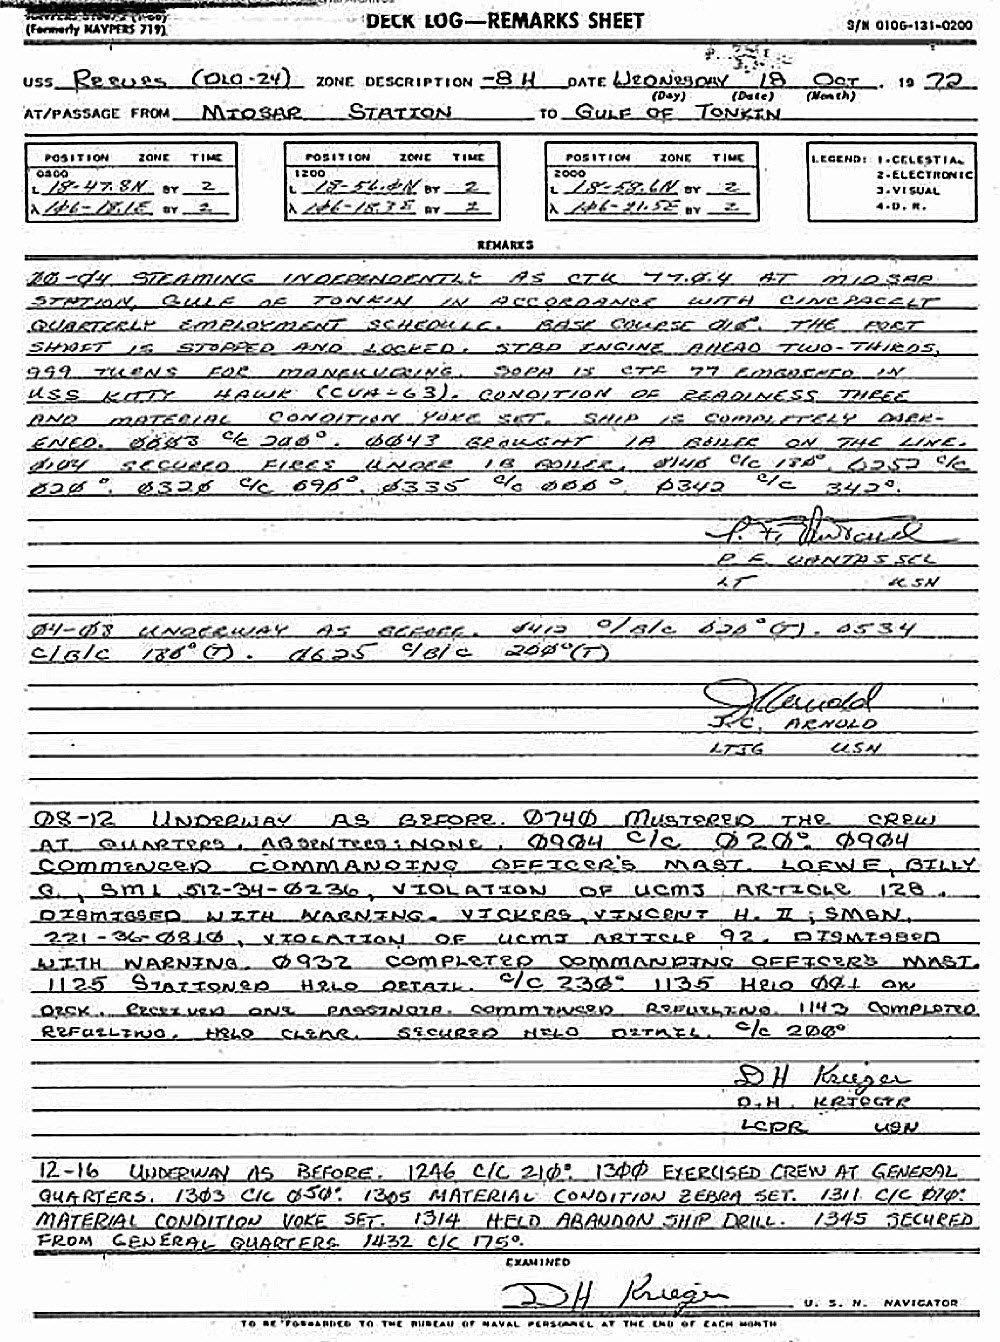 (Formerly NAVPERS 719)
DECK LOG—REMARKS SHEET
S/N 0106-131-0200
USS REEVES (DLG-24) ZONE DESCRIPTION -8 H DATE WEDNESDAY 18 OCT, 19 72
(Day) (Date) (Month)
AT/PASSAGE FROM MIDSAR STATION TO GULF OF TONKIN
POSITION ZONE TIME
0800
L 18-47.8N BY 2
λ 106-18.1E BY 2
POSITION ZONE TIME
1200
L 18-56.0N BY 2
λ 106-18.3E BY 2
POSITION ZONE TIME
2000
L 18-58.6N BY 2
λ 106-21.5E BY 2
LEGEND: 1-CELESTIAL
2-ELECTRONIC
3-VISUAL
4-D. R.
REMARKS
00-04 STEAMING INDEPENDENTLY AS CTU 77.0.4 AT MIDSAR
STATION, GULF OF TONKIN IN ACCORDANCE WITH CINCPACFLT
QUARTERLY EMPLOYMENT SCHEDULE. BASE COURSE 010°. THE PORT
SHAFT IS STOPPED AND LOCKED. STBD ENGINE AHEAD TWO-THIRDS,
999 TURNS FOR MANEUVERING. SOPA IS CTF 77 EMBARKED IN
USS KITTY HAWK (CVA-63). CONDITION OF READINESS THREE
AND MATERIAL CONDITION YOKE SET. SHIP IS COMPLETELY DARK-
ENED. 0003 C/C 200°. 0043 BROUGHT 1A BOILER ON THE LINE.
0104 SECURED FIRES UNDER 1B BOILER. 0140 C/C 180°. 0252 C/C
020°. 0320 C/C 090°. 0335 C/C 000°. 0342 C/C 342°.
P. F. VANTASSEL
LT USN
04-08 UNDERWAY AS BEFORE. 0412 C/B/C 020°(T). 0534
C/B/C 180°(T). 0625 C/B/C 200°(T)
J C Arnold
J.C. ARNOLD
LTJG USN
08-12 UNDERWAY AS BEFORE. 0740 MUSTERED THE CREW
AT QUARTERS. ABSENTEES: NONE. 0904 C/C 020°. 0904
COMMENCED COMMANDING OFFICER'S MAST. LOEWE, BILLY
G., SM1, 512-34-0236, VIOLATION OF UCMJ ARTICLE 128.
DISMISSED WITH WARNING. VICKERS, VINCENT H. II, SMSN,
221-36-0810, VIOLATION OF UCMJ ARTICLE 92. DISMISSED
WITH WARNING. 0932 COMPLETED COMMANDING OFFICER'S MAST.
1125 STATIONED HELO DETAIL. C/C 230° 1135 HELO 001 ON
DECK. RECEIVED ONE PASSENGER. COMMENCED REFUELING. 1143 COMPLETED
REFUELING. HELO CLEAR. SECURED HELO DETAIL. C/C 200°
D H Krieger
D.H. KRIEGER
LCDR USN
12-16 UNDERWAY AS BEFORE. 1246 C/C 210°. 1300 EXERCISED CREW AT GENERAL
QUARTERS. 1303 C/C 050°. 1305 MATERIAL CONDITION ZEBRA SET. 1311 C/C 010°.
MATERIAL CONDITION YOKE SET. 1314 HELD ABANDON SHIP DRILL. 1345 SECURED
FROM GENERAL QUARTERS. 1432 C/C 175°.
EXAMINED
D H Krieger U. S. N. NAVIGATOR
TO BE FORWARDED TO THE BUREAU OF NAVAL PERSONNEL AT THE END OF EACH MONTH